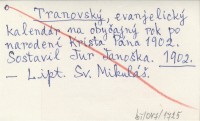 Tranovský, evanjelický
kalendár na obyčajný rok po
narodení Krista Pána 1902.
Sostavil Jur Janoška. 1902.
– Lipt. Sv. Mikuláš.